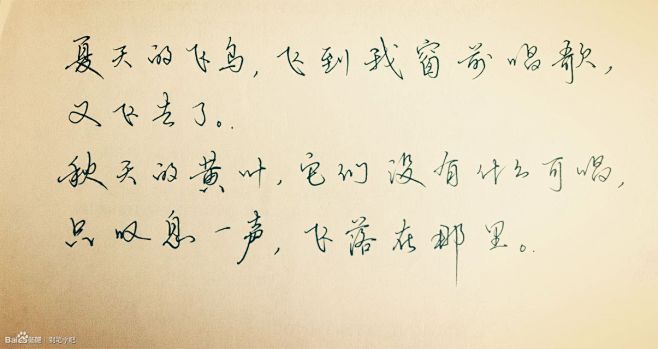 夏天的飞鸟，飞到我窗前唱歌，
又飞去了。
秋天的黄叶，它们没有什么可唱，
只叹息一声，飞落在那里。
Bai 贴吧 | 钢笔吧